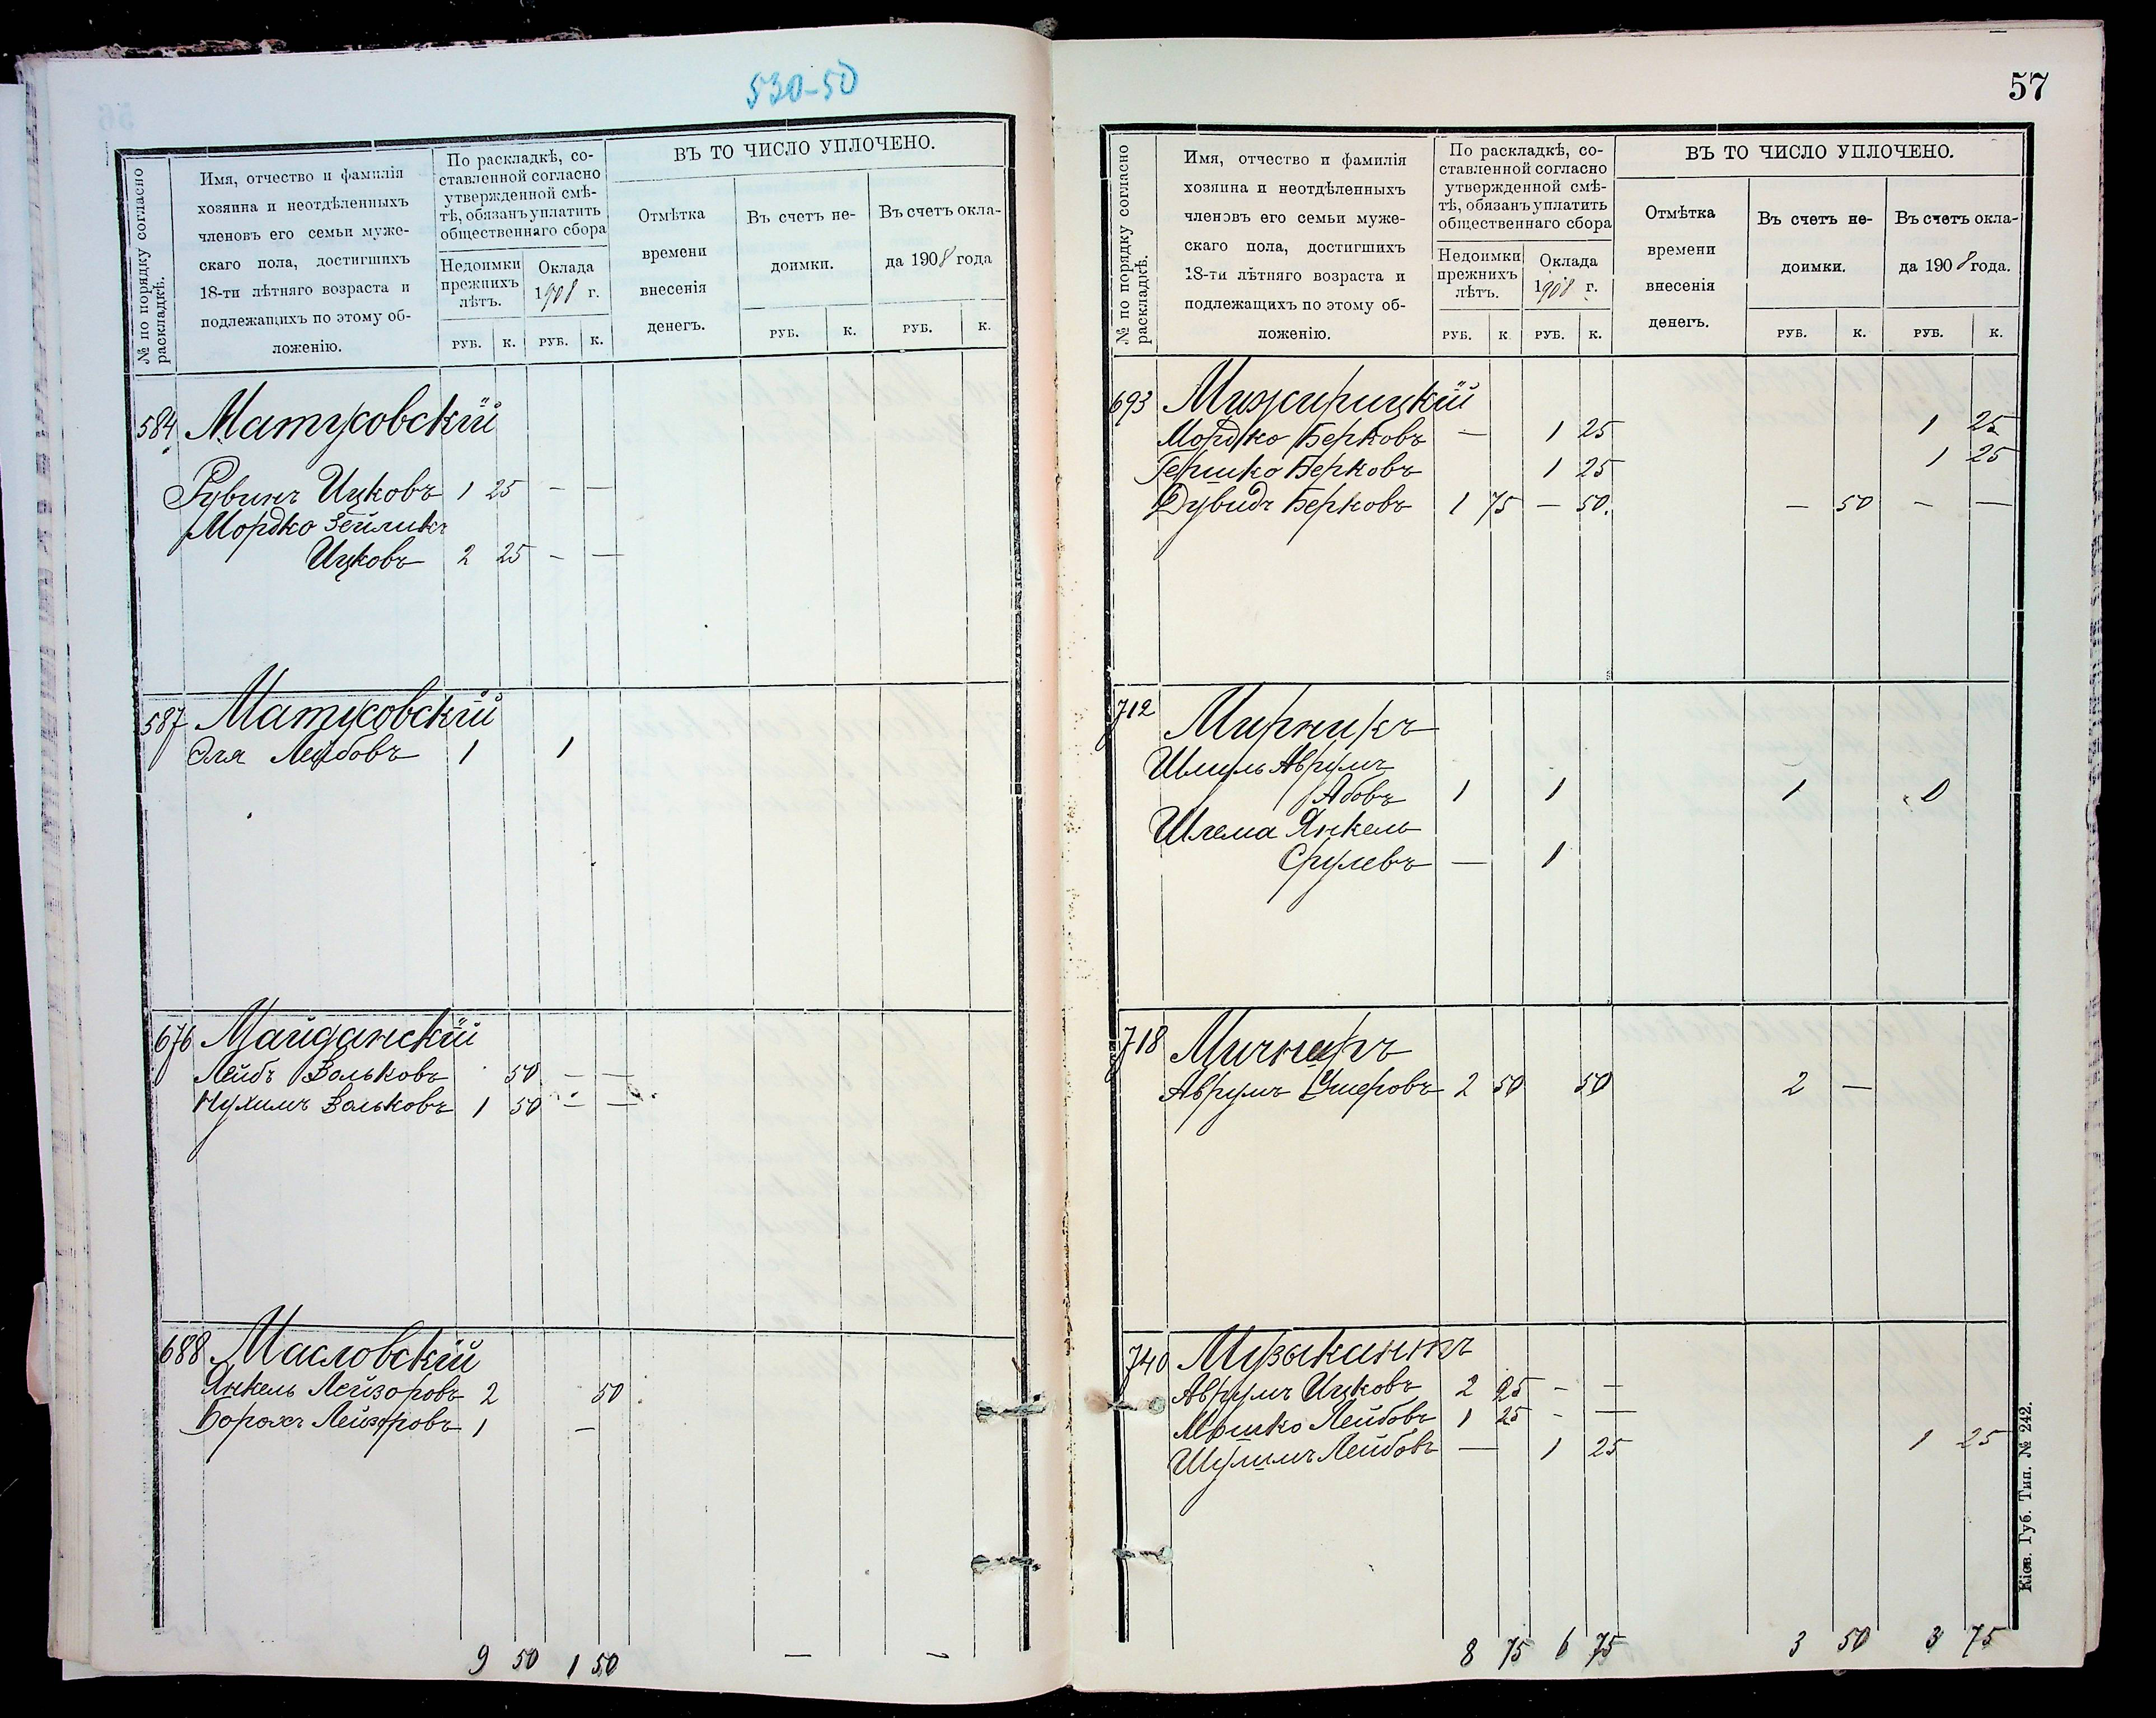 530-50
№ по порядку согласно раскладкѣ.
Имя, отчество и фамилія
хозяина и неотдѣленныхъ
членовъ его семьи муже-
скаго пола, достигшихъ
18-ти лѣтняго возраста и
подлежащихъ по этому об-
ложенію.
По раскладкѣ, со-
ставленной согласно
утвержденной смѣ-
тѣ, обязанъ уплатить
общественнаго сбора
Недоимки
прежнихъ
лѣтъ.
Оклада
1908 г.
РУБ. К. РУБ. К.
ВЪ ТО ЧИСЛО УПЛОЧЕНО.
Отмѣтка
времени
внесенія
денегъ.
Въ счетъ не-
доимки.
Въ счетъ окла-
да 1908 года
РУБ. К. РУБ. К.
584 Матусовскій
Рувинъ Ицковъ 1 25 — —
Мордко Зейликъ
Ицковъ 2 25 — —
587 Матусовскій
Эля Лейбовъ 1 1
676 Майданскій
Лейбъ Вольковъ 50 — —
Нухимъ Вольковъ 1 50 — —
688 Масловскій
Янкель Лейзоровъ 2 50
Борохъ Лейзоровъ 1 —
9 50 1 50 — —
57
№ по порядку согласно раскладкѣ.
Имя, отчество и фамилія
хозяина и неотдѣленныхъ
членовъ его семьи муже-
скаго пола, достигшихъ
18-ти лѣтняго возраста и
подлежащихъ по этому об-
ложенію.
По раскладкѣ, со-
ставленной согласно
утвержденной смѣ-
тѣ, обязанъ уплатить
общественнаго сбора
Недоимки
прежнихъ
лѣтъ.
Оклада
1908 г.
РУБ. К РУБ. К.
ВЪ ТО ЧИСЛО УПЛОЧЕНО.
Отмѣтка
времени
внесенія
денегъ.
Въ счетъ не-
доимки.
Въ счетъ окла-
да 1908 года.
РУБ. К. РУБ. К.
693 Межирицкій
Мордко Берковъ — 1 25 1 25
Гершко Берковъ 1 25 1 25
Дувидъ Берковъ 1 75 — 50. — 50 — —
712 Мирникъ
Шмуль Аврумъ
Абовъ 1 1 1
Шлема Янкель
Срулевъ — 1
718
Аврумъ Ушеровъ 2 50 50 2 —
740 Музыкантъ
Аврумъ Ицковъ 2 25 — —
Мошко Лейбовъ 1 25 — —
Шулимъ Лейбовъ — 1 25 1 25
8 75 6 75 3 50 3 75
Кіев. Губ. Тип. № 242.